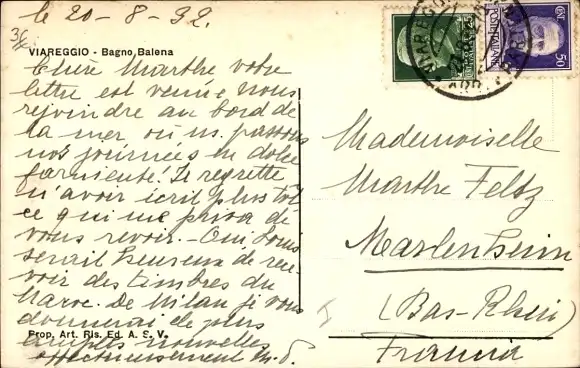 le 20-8-32.
VIAREGGIO - Bagno Balena
Chère Marthe votre
lettre est venue nous
rejoindre au bord de
la mer où n. passons
nos journées en dolce
farniente! Je regrette
n'avoir écrit plus tôt
ce qui me priva de
vous revoir. - Oui,
serait heureux de rece-
voir des timbres du
Maroc. De Milan je vous
donnerai de plus
amples nouvelles
affectueusement
Prop. Art. Ris. Ed. A. E. V.
Mademoiselle
Marthe Feltz
Marlenheim
(Bas-Rhin)
Francia
POSTE ITALIANE
50
VIAREGGIO